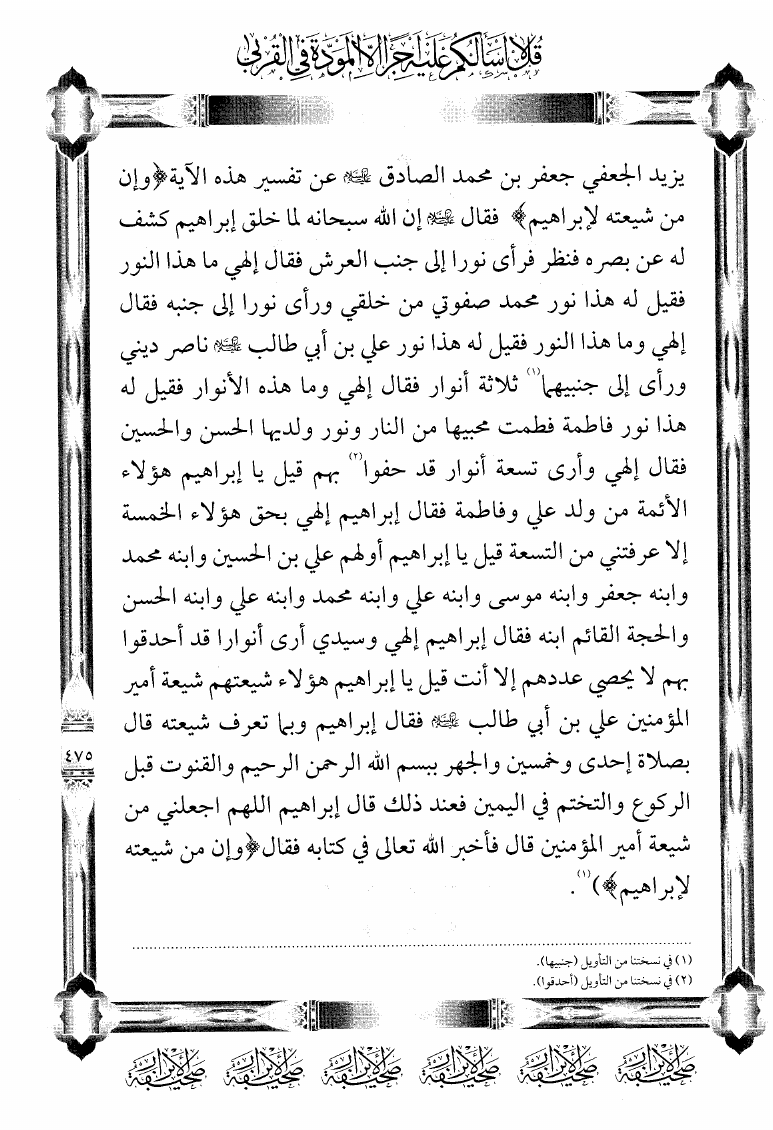 قل لا أسألكم عليه أجرا إلا المودة في القربى
يزيد الجعفي جعفر بن محمد الصادق عليه السلام عن تفسير هذه الآية ﴿وإن
من شيعته لإبراهيم﴾ فقال عليه السلام إن الله سبحانه لما خلق إبراهيم كشف
له عن بصره فنظر فرأى نورا إلى جنب العرش فقال إلهي ما هذا النور
فقيل له هذا نور محمد صفوتي من خلقي ورأى نورا إلى جنبه فقال
إلهي وما هذا النور فقيل له هذا نور علي بن أبي طالب عليه السلام ناصر ديني
ورأى إلى جنبيهما(١) ثلاثة أنوار فقال إلهي وما هذه الأنوار فقيل له
هذا نور فاطمة فطمت محبيها من النار ونور ولديها الحسن والحسين
فقال إلهي وأرى تسعة أنوار قد حفوا(٢) بهم قيل يا إبراهيم هؤلاء
الأئمة من ولد علي وفاطمة فقال إبراهيم إلهي بحق هؤلاء الخمسة
إلا عرفتني من التسعة قيل يا إبراهيم أولهم علي بن الحسين وابنه محمد
وابنه جعفر وابنه موسى وابنه علي وابنه محمد وابنه علي وابنه الحسن
والحجة القائم ابنه فقال إبراهيم إلهي وسيدي أرى أنوارا قد أحدقوا
بهم لا يحصي عددهم إلا أنت قيل يا إبراهيم هؤلاء شيعتهم شيعة أمير
المؤمنين علي بن أبي طالب عليه السلام فقال إبراهيم وبما تعرف شيعته قال
بصلاة إحدى وخمسين والجهر ببسم الله الرحمن الرحيم والقنوت قبل
الركوع والتختم في اليمين فعند ذلك قال إبراهيم اللهم اجعلني من
شيعة أمير المؤمنين قال فأخبر الله تعالى في كتابه فقال ﴿وإن من شيعته
لإبراهيم﴾)(١).
(١) في نسختنا من التأويل (جنبيها).
(٢) في نسختنا من التأويل (أحدقوا).
٤٧٥
صحيفة الأبرار صحيفة الأبرار صحيفة الأبرار صحيفة الأبرار صحيفة الأبرار صحيفة الأبرار